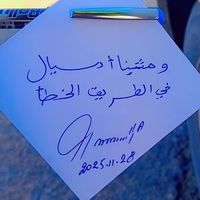 ومشينا أميال
في الطريق الخطأ
2025.11.28